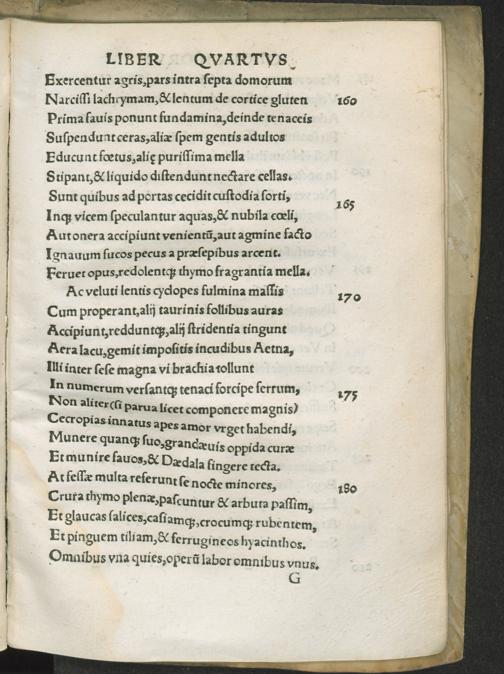 LIBER QVARTVS
Exercentur agris,pars intra septa domorum
Narcissi lachrymam,& lentum de cortice gluten 160
Prima fauis ponunt fundamina,deinde tenaceis
Suspendunt ceras,aliæ spem gentis adultos
Educunt fœtus,alię purissima mella
Stipant,& liquido distendunt nectare cellas.
Sunt quibus ad portas cecidit custodia sorti, 165
Inqȝ vicem speculantur aquas,& nubila cœli,
Aut onera accipiunt venientũ,aut agmine facto
Ignauum fucos pecus a præsepibus arcent.
Feruet opus,redolentqȝ thymo fragrantia mella.
Ac veluti lentis cyclopes fulmina massis 170
Cum properant,alij taurinis follibus auras
Accipiunt,redduntqȝ,alij stridentia tingunt
Aera lacu,gemit impositis incudibus Aetna,
Illi inter sese magna vi brachia tollunt
In numerum versantqȝ tenaci forcipe ferrum, 175
Non aliter(si parua licet componere magnis)
Cecropias innatus apes amor vrget habendi,
Munere quanqȝ suo,grandæuis oppida curæ
Et munire fauos,& Dædala fingere tecta.
At fessæ multa referunt se nocte minores, 180
Crura thymo plenæ,pascuntur & arbuta passim,
Et glaucas salices,casiamqȝ,crocumqȝ rubentem,
Et pinguem tiliam,& ferrugineos hyacinthos.
Omnibus vna quies,operũ labor omnibus vnus.
G